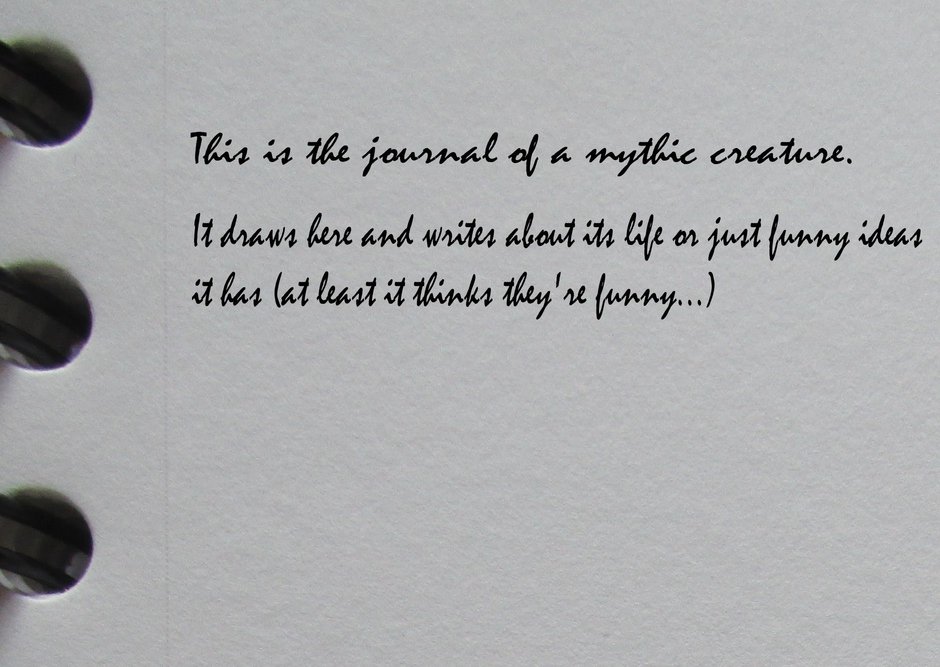 This is the journal of a mythic creature.
It draws here and writes about its life or just funny ideas
it has (at least it thinks they're funny...)